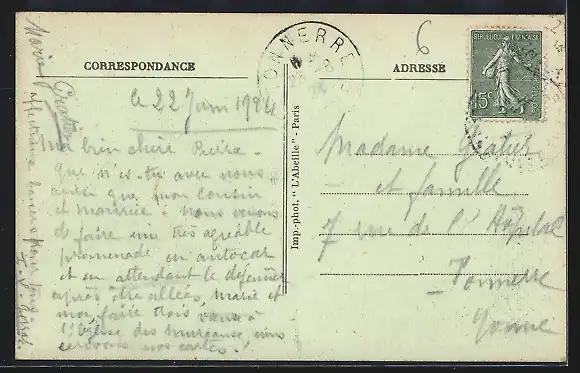 CORRESPONDANCE
ADRESSE
TONNERRE
6
REPUBLIQUE FRANÇAISE
15c
le 22 Juin 1924
Ma bien chère
Que n'es-tu avec nous
ainsi que mon cousin
et Maurice. Nous venons
de faire une très agréable
promenade en autocar
et en attendant le déjeuner
après être allées, Marie et
moi, faire trois vœux à
l'Eglise des nous
écrivons nos cartes.
Marie
affectueux baisers pour tous
Imp.-phot. "L'Abeille" - Paris
Madame
et famille
7 rue de l'Hôpital
Tonnerre
Yonne